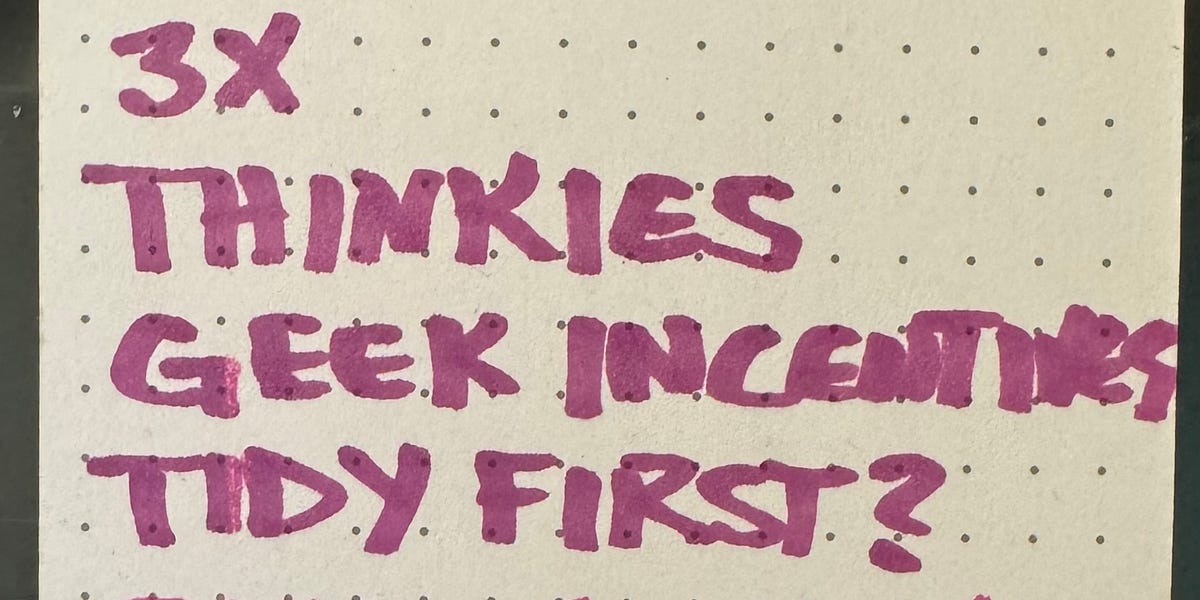 3X
THINKIES
GEEK INCENTIVES
TIDY FIRST?